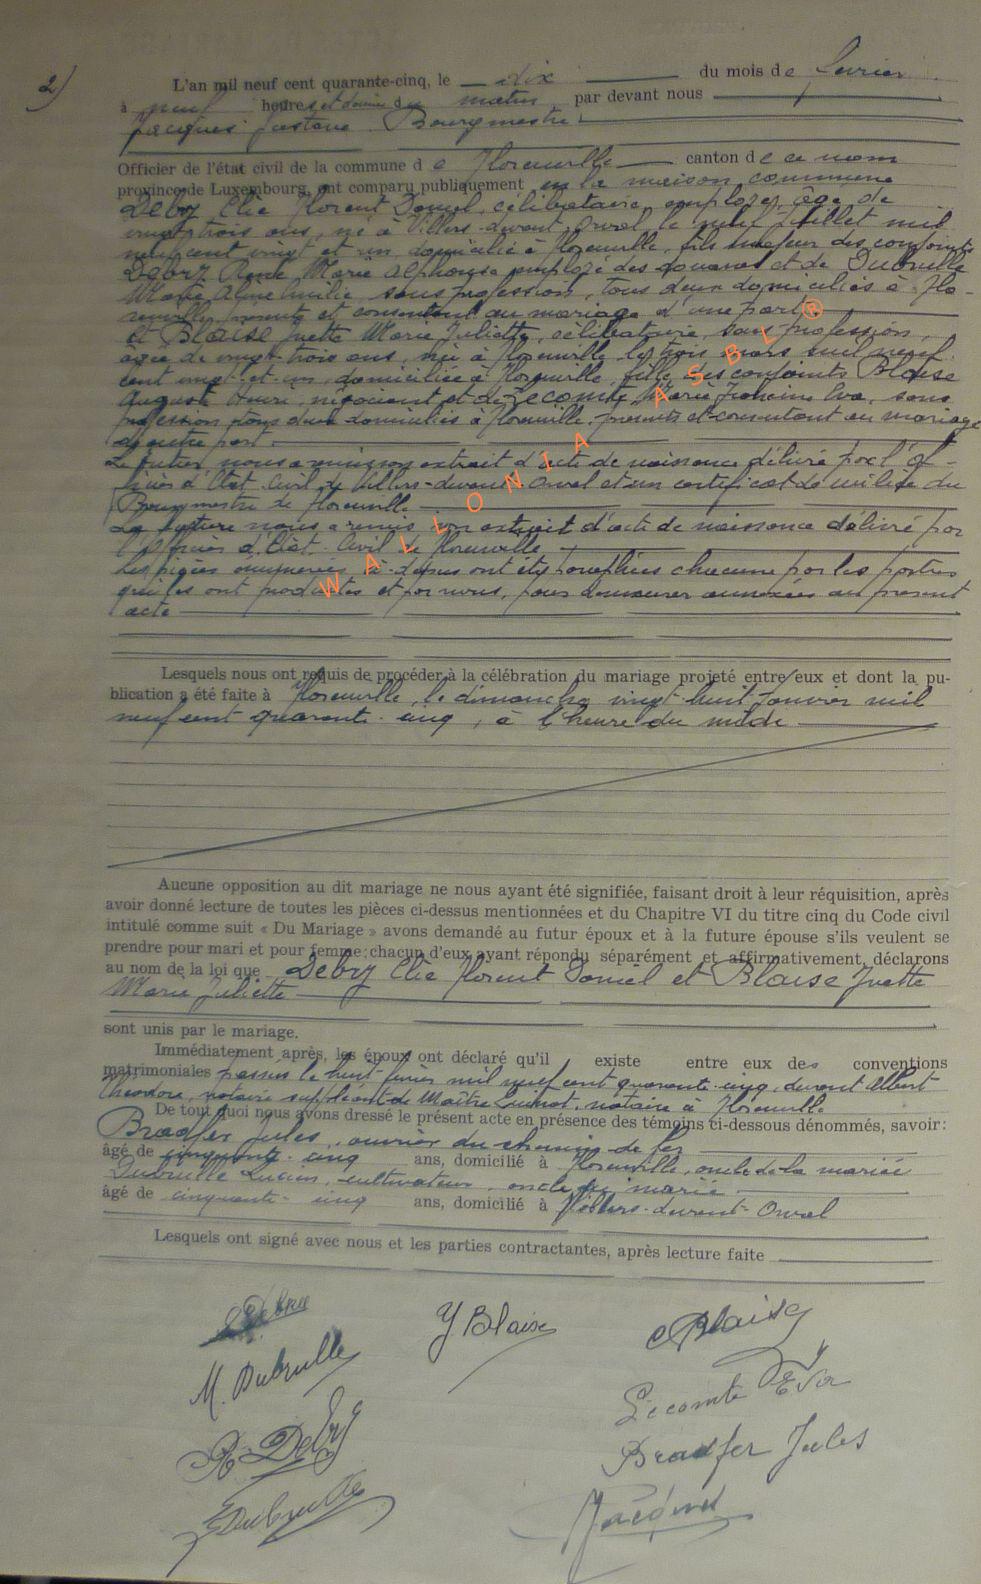 2)
L'an mil neuf cent quarante-cinq, le dix du mois de février
à neuf heures et demie du matin par devant nous
Jacques Gustave Bourgmestre
Officier de l'état civil de la commune de Florenville canton de ce nom
province de Luxembourg, ont comparu publiquement en la maison commune
Debry Elie Florent Daniel, célibataire, employé, âgé de
vingt-trois ans, né à Villers-devant-Orval le neuf Juillet mil
neuf cent vingt et un, domicilié à Florenville, fils majeur des conjoints
Debry René Marie Alphonse employé des douanes et de Dubrulle
Marie Aline Emilie sans profession, tous deux domiciliés à Flo-
renville, présents et consentant au mariage d'une part
et Blaise Yvette Marie Juliette, célibataire, sans profession,
âgée de vingt-trois ans, née à Florenville le trois mars mil neuf
cent vingt-et-un, domiciliée à Florenville, fille des conjoints Blaise
Auguste Henri, négociant et de Lecomte Marie Eva, sans
profession tous deux domiciliés à Florenville, présents et consentant au mariage
d'autre part
Le futur, nous a remis son extrait d'acte de naissance délivré par l'of-
ficier d'Etat Civil de Villers-devant-Orval et un certificat de milice du
Bourgmestre de Florenville
La future nous a remis son extrait d'acte de naissance délivré par
l'officier d'Etat Civil de Florenville.
Les pièces énumérées ci-dessus ont été paraphées chacune par les parties
qui les ont produites et par nous, pour demeurer annexées au présent
acte
WALLONIA ASBL ®
Lesquels nous ont requis de procéder à la célébration du mariage projeté entre eux et dont la pu-
blication a été faite à Florenville, le dimanche vingt-huit Janvier mil
neuf cent quarante-cinq, à l'heure du midi
Aucune opposition au dit mariage ne nous ayant été signifiée, faisant droit à leur réquisition, après
avoir donné lecture de toutes les pièces ci-dessus mentionnées et du Chapitre VI du titre cinq du Code civil
intitulé comme suit « Du Mariage » avons demandé au futur époux et à la future épouse s'ils veulent se
prendre pour mari et pour femme; chacun d'eux ayant répondu séparément et affirmativement, déclarons
au nom de la loi que Debry Elie Florent Daniel et Blaise Yvette
Marie Juliette
sont unis par le mariage.
Immédiatement après, les époux ont déclaré qu'il existe entre eux des conventions
matrimoniales passées le huit février mil neuf cent quarante-cinq devant Albert
Théodore, notaire suppléant de Maître notaire à Florenville
De tout quoi nous avons dressé le présent acte en présence des témoins ci-dessous dénommés, savoir:
Bradfer Jules, ouvrier du chemin de fer
âgé de cinquante-cinq ans, domicilié à Florenville, oncle de la mariée
Dubrulle Lucien, cultivateur, oncle du marié
âgé de cinquante-cinq ans, domicilié à Villers-devant-Orval
Lesquels ont signé avec nous et les parties contractantes, après lecture faite
Y Blaise
Blaise
M. Dubrulle
Lecomte Eva
R. Debry
Bradfer Jules
Dubrulle
Jacques